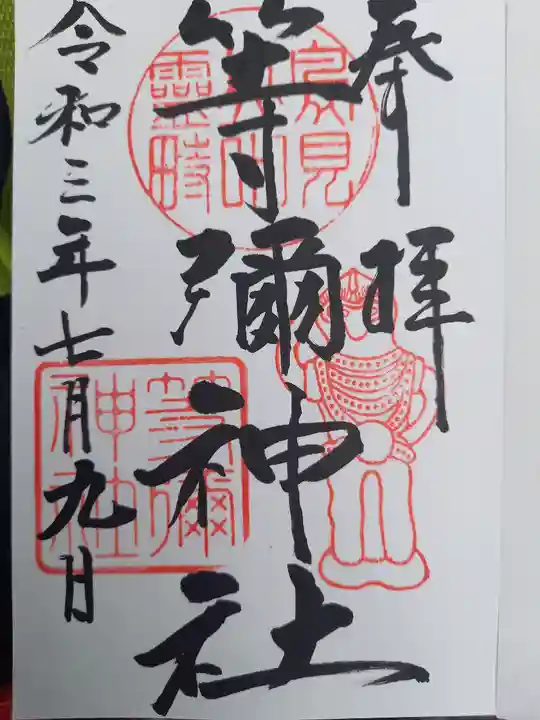 奉拝
等彌神社
令和三年七月九日
鳥見山中靈畤
等彌神社